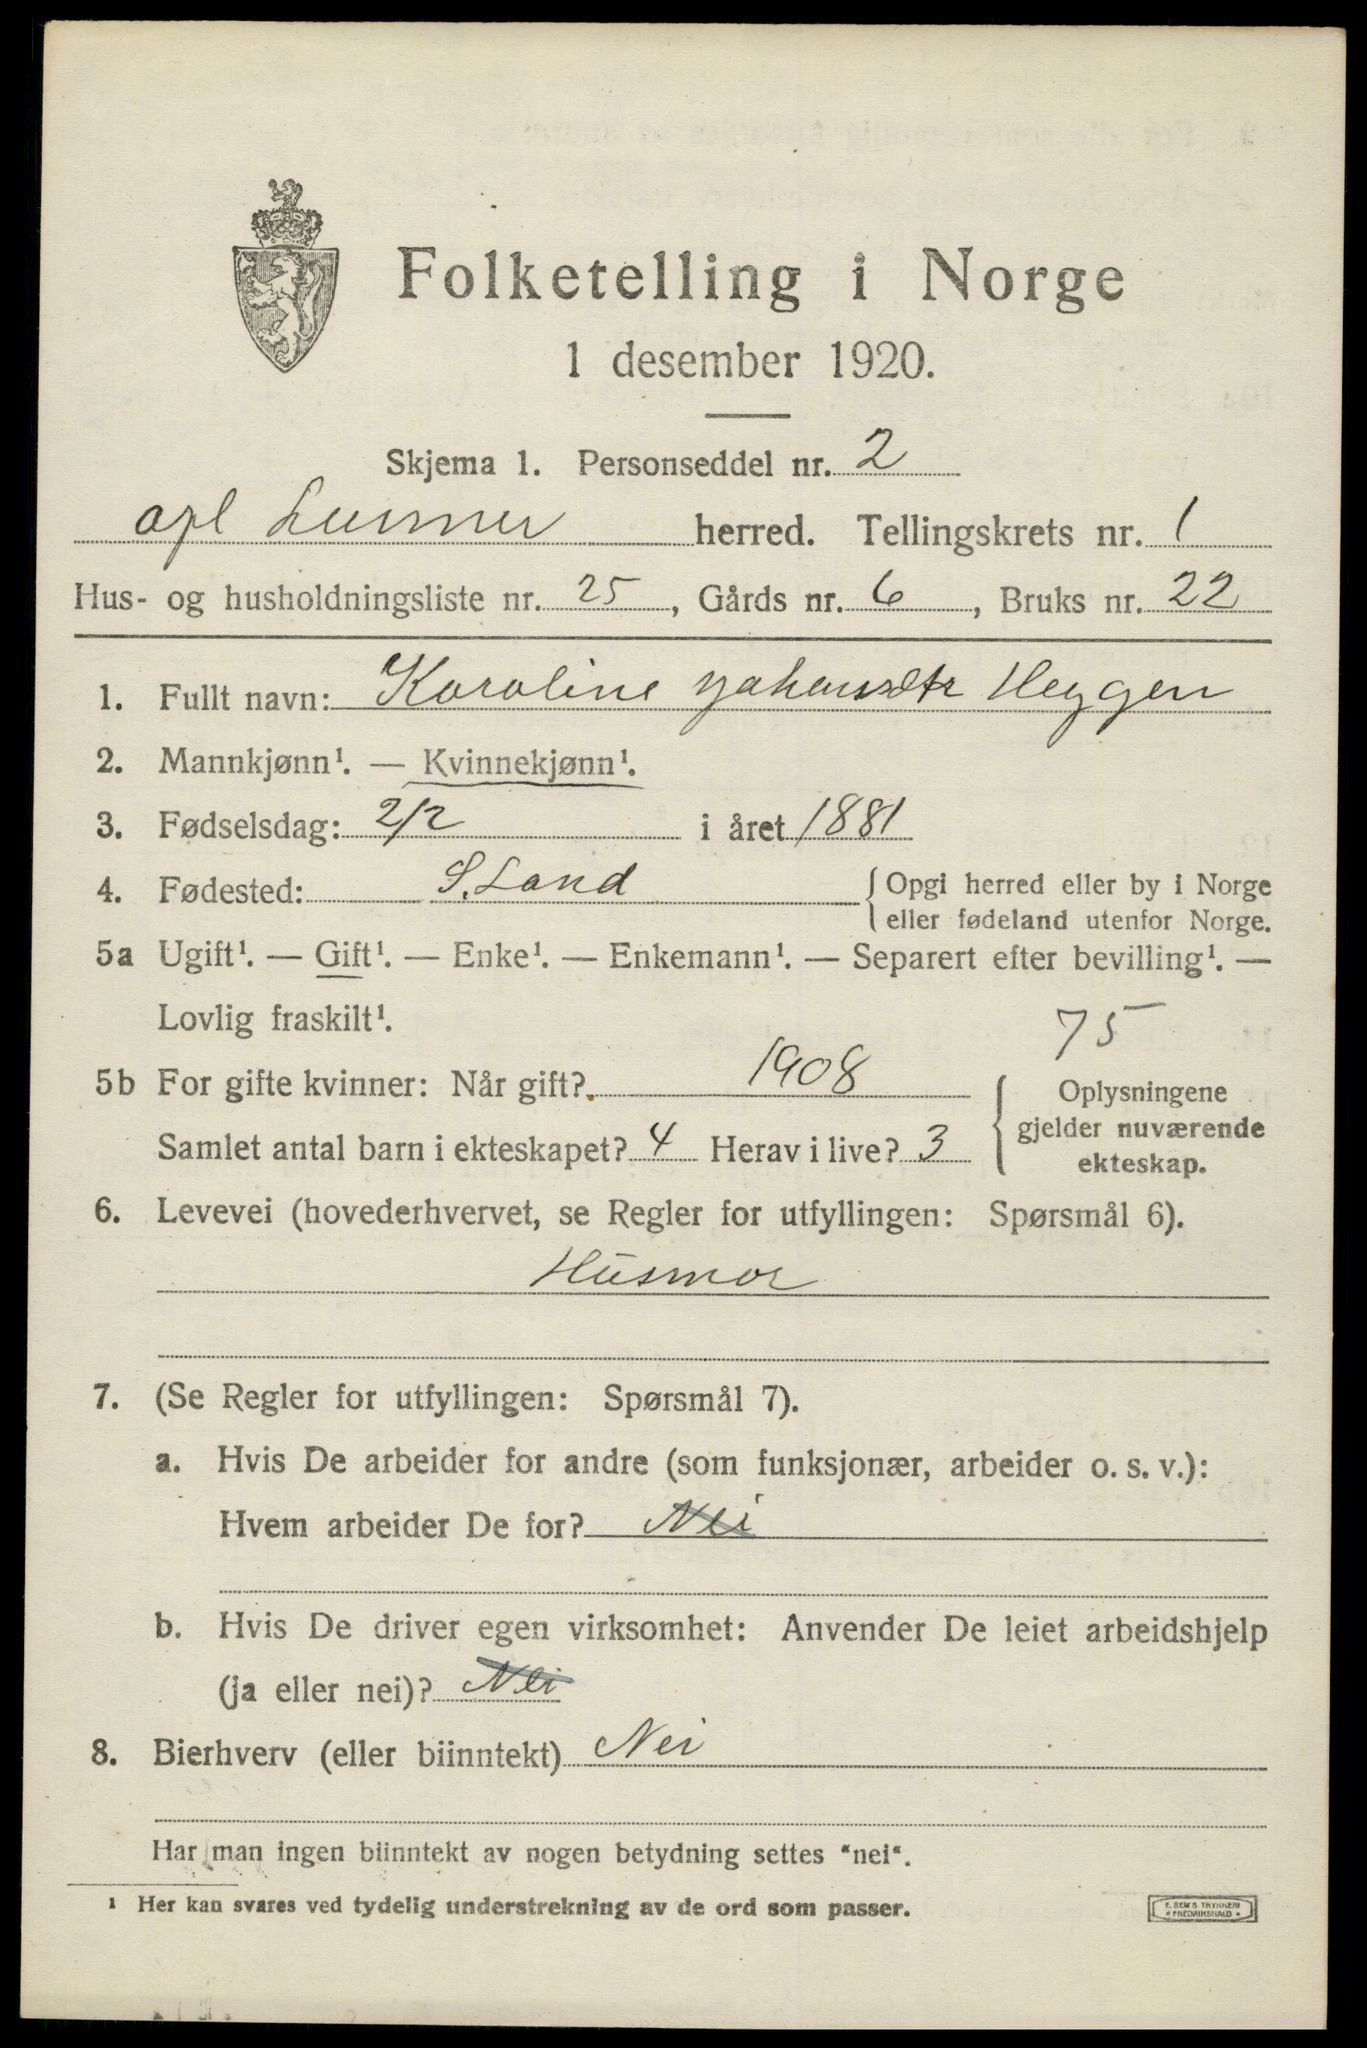 Folketelling i Norge
1 desember 1920.
Skjema 1. Personseddel nr. 2
opl Lunner herred. Tellingskrets nr. 1
Hus- og husholdningsliste nr. 25, Gårds nr. 6, Bruks nr. 22
1. Fullt navn: Karoline Heggen
2. Mannkjønn¹. — Kvinnekjønn¹.
3. Fødselsdag: 2/2 i året 1881
4. Fødested: S. Land {Opgi herred eller by i Norge
eller fødeland utenfor Norge.
5a Ugift¹. — Gift¹. — Enke¹. — Enkemann¹. — Separert efter bevilling¹. —
Lovlig fraskilt¹.
75
5b For gifte kvinner: Når gift? 1908
Samlet antal barn i ekteskapet? 4 Herav i live? 3
Oplysningene
gjelder nuværende
ekteskap.
6. Levevei (hovederhvervet, se Regler for utfyllingen: Spørsmål 6).
Husmor
7. (Se Regler for utfyllingen: Spørsmål 7).
a. Hvis De arbeider for andre (som funksjonær, arbeider o. s. v.):
Hvem arbeider De for? Nei
b. Hvis De driver egen virksomhet: Anvender De leiet arbeidshjelp
(ja eller nei)? Nei
8. Bierhverv (eller biinntekt) Nei
Har man ingen biinntekt av nogen betydning settes "nei".
¹ Her kan svares ved tydelig understrekning av de ord som passer.
E. SEM'S TRYKKERI
FREDRIKSHALD